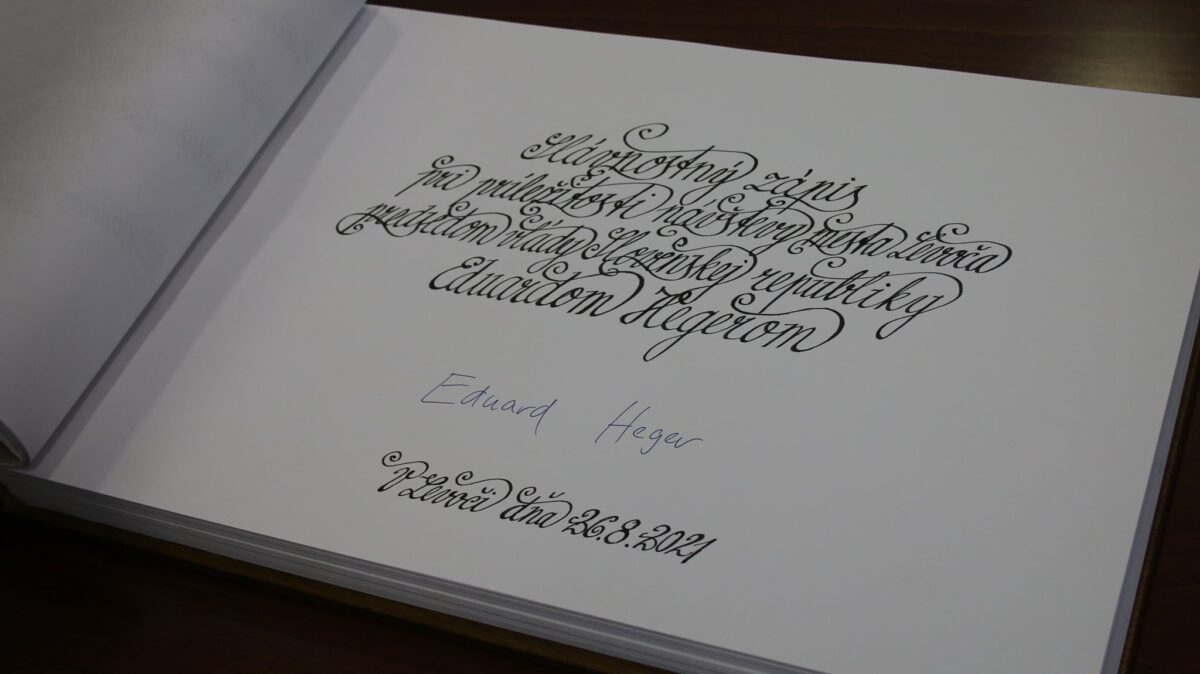 Slávnostný zápis
pri príležitosti návštevy mesta Levoča
predsedom vlády Slovenskej republiky
Eduardom Hegerom
Eduard Heger
V Levoči dňa 26.8.2021